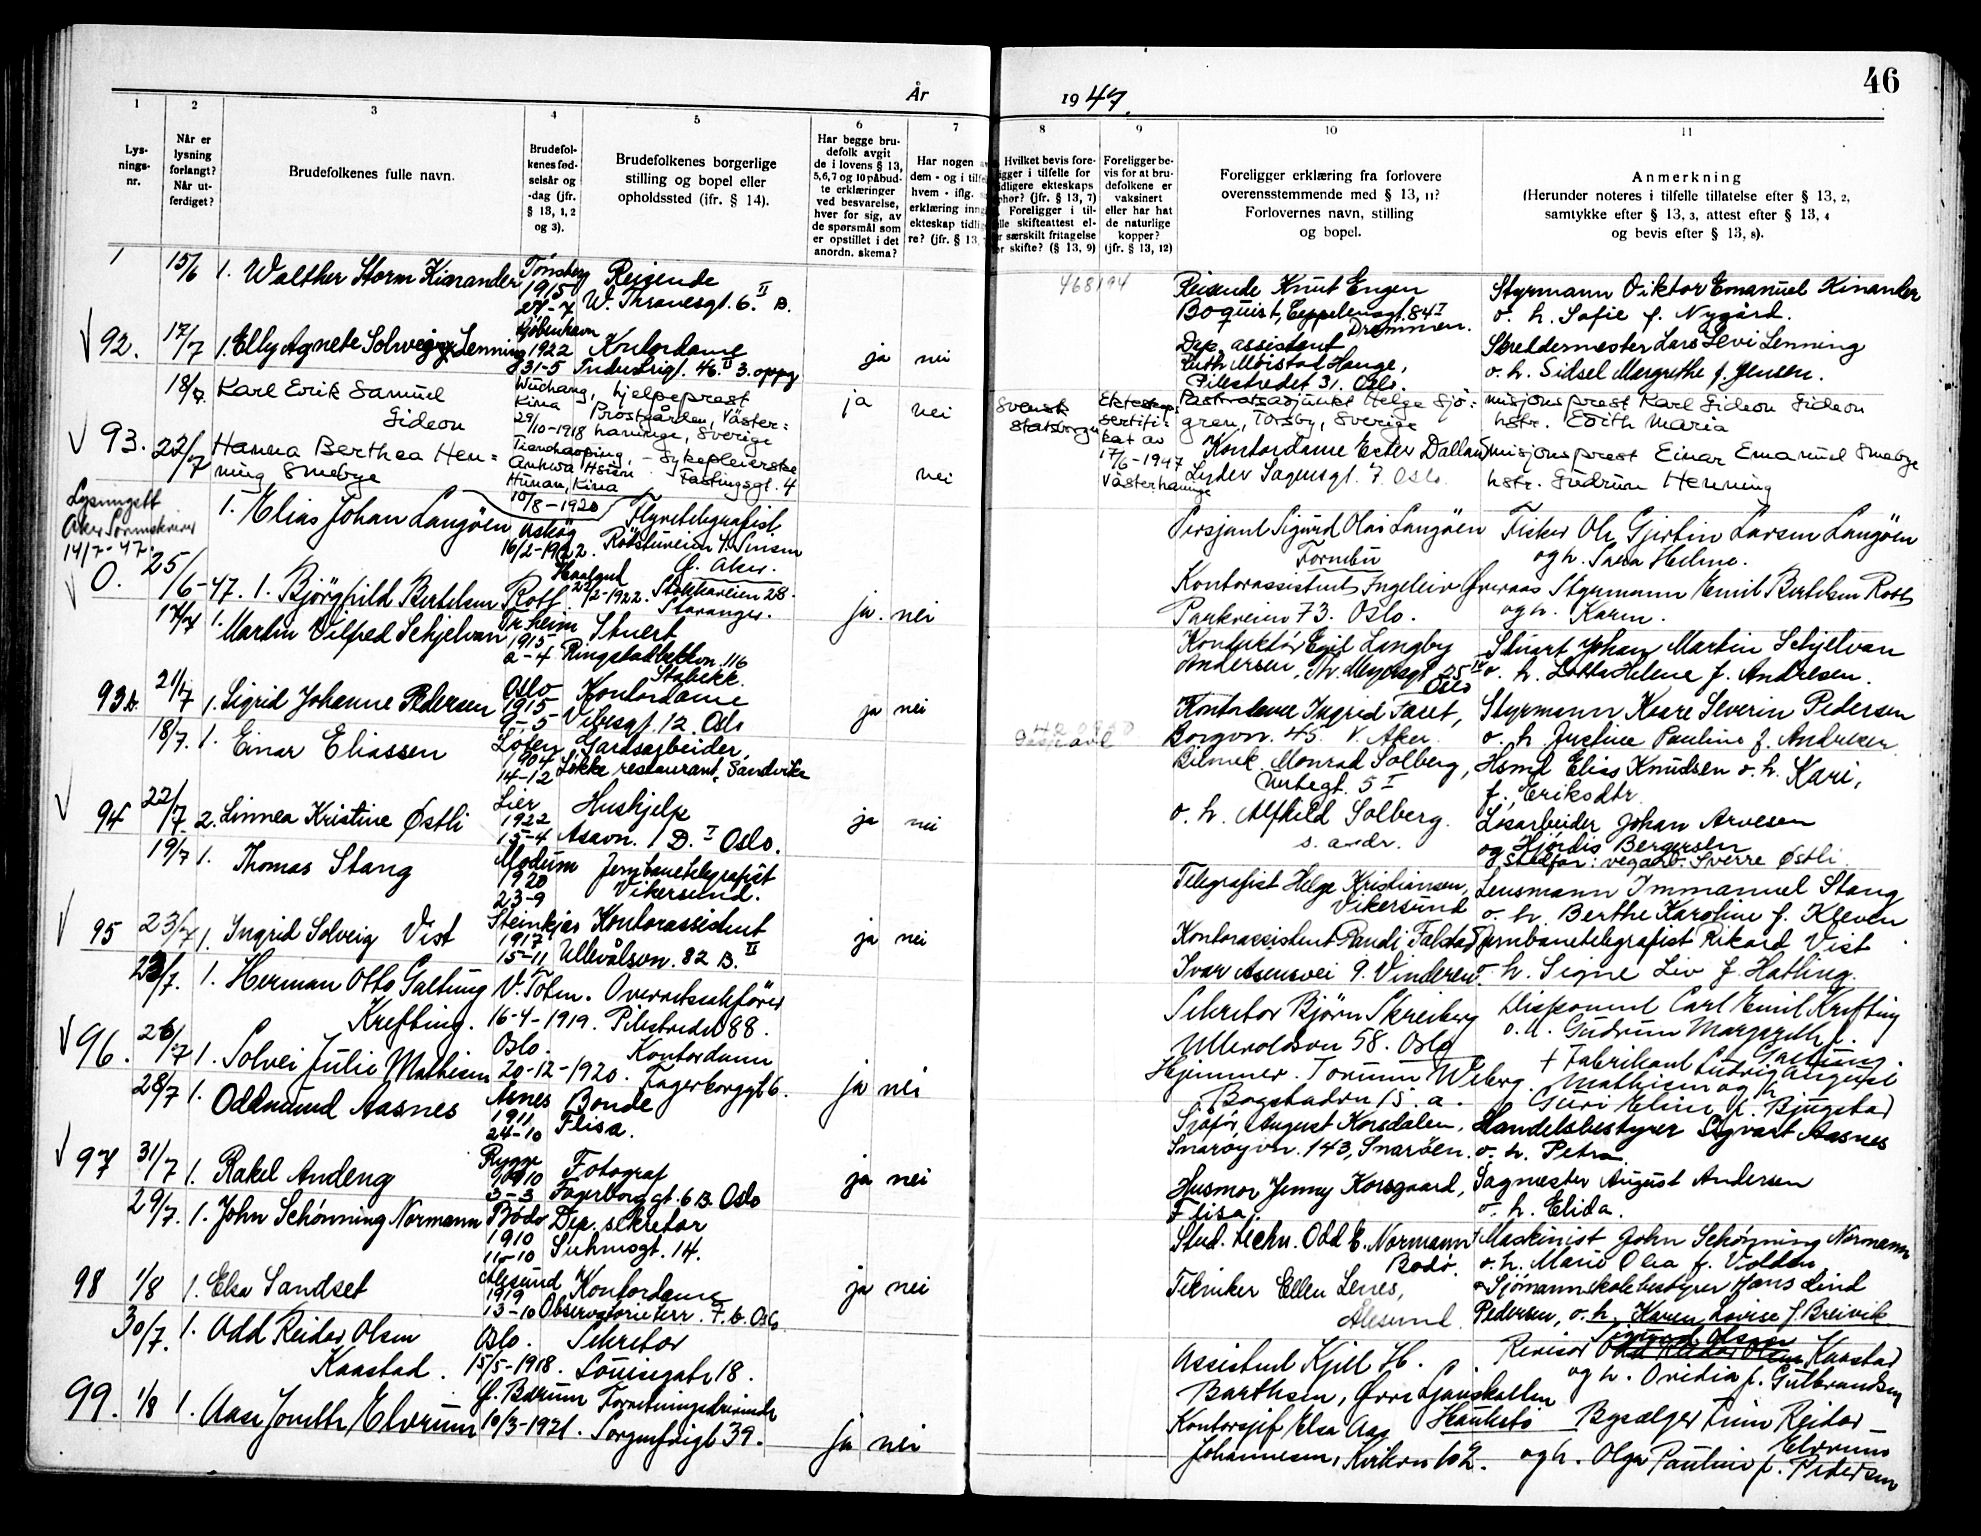 46
År 1947.
1 2 3 4 5 6 7 8 9 10 11
Lys-
nings-
nr.
Når er
lysning
forlangt?
Når ut-
ferdiget?
Brudefolkenes fulle navn.
Brudefol-
kenes fød-
selsår og
-dag (jfr.
§ 13, 1, 2
og 3).
Brudefolkenes borgerlige
stilling og bopel eller
opholdssted (ifr. § 14).
Har begge bru-
defolk avgit
de i lovens § 13,
5,6,7 og 10 påbud-
te erklæringer
ved besvarelse,
hver for sig, av
de spørsmål som
er opstillet i det
anordn. skema?
Har nogen
dem - og i
hvem - iflg.
erklæring
ekteskap
re? (jfr. § 13,
Hvilket bevis fore-
ligger i tilfelle for
tidligere ekteskaps
ophør? (jfr. § 13, 7)
Foreligger i til-
felle skifteattest el-
ler særskilt fritagelse
for skifte? (§ 13, 9)
Foreligger be-
vis for at bru-
defolkene er
vaksinert
eller har hat
de naturlige
kopper?
(jfr. § 13, 12)
Foreligger erklæring fra forlovere
overensstemmende med § 13, 11?
Forlovernes navn, stilling
og bopel.
Anmerkning
(Herunder noteres i tilfelle tillatelse efter § 13, 2,
samtykke efter § 13, 3, attest efter § 13, 4
og bevis efter § 13, 8).
15/6 1. Walther Storm Kinander Tønsberg 1915 Reisende
W. Thranesgt. 6. II B.
Reisende Knut Engen
Boquist, Eppelensgt. 84 I
Drammen.
Styrmann Viktor Emanuel Kinander
o. h. Sofie f. Nygård.
92. 17/7 1. Elly Agnete Solveig Lenning København 1922 31-5 Kontordame
Industrigt. 46. II 3. oppg ja nei
Dep. assistent
Ruth Moistad Hauge,
Pilestredet 31. Oslo.
Skreddermester Lars Levi Lenning
o. h. Sidsel Margrethe f. Jensen.
18/7 Karl Erik Samuel
Gideon
Wuchang,
Kina
29/10-1918
hjelpeprest
Prostgården, Väster=
haninge, Sverige
ja nei
Svensk
statsborger
Ekteskaps
sertifi-
kat av
17/6-1947
Västerhaninge
Pastoratsadjunkt Helge Sjö=
gren, Torsby, Sverige
misjonsprest Karl Gideon Gideon
hstr. Edith Maria
93. 22/7 Hanna Berthea Hen=
ning Smebye
Hunan, Kina
10/8-1920
Sykepleierske
Fastingsgt. 4
nei
Kontordame Ester Dalland
Lyder Sagensgt. 7 Oslo.
misjonsprest Einar Emanuel Smebye
hstr. Gudrun Henning
Lysningsatt
14/7-47.
1. Elias Johan Langøen
16/2-1922.
Flyvetelegrafist
Aker.
Sersjant Sigurd Olai Langøen
Fornebu
Fisker Ole Gjertin Larsen Langøen
og h. Sara Helme.
0. 25/6-47. 1. Bjørghild Bertelsen Rott 22/2-1922. Stokkaveien 28.
Stavanger. ja. nei
Kontorassistent Ingeleiv Øveraas
Parkveien 73. Oslo.
Styrmann Emil Bertelsen Rott
og h. Karen.
17/7 1. Martin Vilfred Schjelvan Tr.heim 1915 2-4 Stuert
Ringstabekkvn. 116
Stabekk.
Konduktør Egil Langby
Andersen, Th. Meyersgt 25 IV
Oslo
Stuert Johan Martin Schjelvan
o. h. Lotta Helene f. Andresen.
93b. 21/7 1. Sigrid Johanne Pedersen Oslo 1915 9-5 Kontordame
Vibesgt. 12. Oslo ja nei
Kontorelev Ingrid Faret,
Borgvn. 45. V. Aker.
Styrmann Kaare Severin Pedersen
o. h. Justine Pauline f. Andresen
18/7. 1. Einar Eliassen Løten 1904 14-12 Gardsarbeider,
Løkke restaurant, Sandvika
Bilmek. Monrad Solberg,
5 I
Hsmd Elias Knudsen o. h. Kari,
f. Eriksdtr.
94 22/7. 2. Linnea Kristine Østli Lier 1922 15-4 Hushjelp
Asavn. 1 D. I Oslo. ja nei
o. h. Alfhild Solberg.
s. adr.
Løsarbeider Johan Arvesen
og Hjørdis Bergersen
stedfar: vegarb. Sverre Østli
19/7 1. Thomas Stang Modum 1920 23-9 Jernbanetelegrafist
Vikersund.
Telegrafist Helge Kristiansen,
Vikersund
Lensmann Immanuel Stang
o. h. Berthe Karoline f. Kleven
95 23/7 1. Ingrid Solveig Vist Steinkjer 1917 15-11 Kontorassistent
Ullevålsvn. 82 B. II ja nei
Kontorassistent Randi Falstad
Ivar Asensvei 9. Vinderen
Jernbanetelegrafist Rikard Vist
o. h. Signe Liv f. Hatling.
23/7. 1. Herman Otto Galtung
Krefting.
V. Toten.
16-4-1919.
Overrettssakfører
Pilestredet 88.
Sekretær Bjørn Skreiberg
Ullevolsvn 58. Oslo
Disponent Carl Emil Krefting
o. h. Gudrun Margrethe f.
Galtung.
96. 26/7 1. Solvei Julie Mathisen Oslo.
20-12-1920. Kontordame
Fagerborggt 6. ja nei
Hjemmev. Torunn Wiberg.
Bogstadvn 15. a.
+ Fabrikant Ludvig August
Mathisen og h.
Guri Elise f. Bjugstad
28/7 1. Oddmund Aasnes Åsnes 1911 24-10 Bonde
Flisa.
Sjåfør August Korsdalen,
Snarøyvn. 143, Snarøen.
Handelsbestyrer Sigvart Aasnes
o. h. Petra
97 31/7 1. Rakel Andeng Rygge 1910 3-3 Fotograf
Fagerborggt. 6 B. Oslo ja nei
Husmor Jenny Korsgaard,
Flisa.
Sagmester August Andersen
o. h. Elida.
29/7. 1. John Schønning Normann Bodø 1910 Dep. sekretær
Suhmsgt. 14.
Stud. techn. Odd E. Normann
Bodø.
Maskinist John Schønning Normann
o. h. Marie Olea f. Volden
98 1/8 1. Elsa Sandset Ålesund 1919 13-10 Kontordame
Observatorieterr. 7. b. Oslo ja nei
Tekniker Ellen Lenes,
Ålesund.
Sjømannskolebestyrer Hans Lind
Pedersen, o. h. Karen Lovise f. Breivik
30/7. 1. Odd Reidar Olsen
Kaastad.
Oslo.
15/5-1918.
Sekretær
Louisegate 18.
Assistent Kjell H.
Barthsen, Øvre Ljanskollen
Hauketo
Sigurd Olsen
Revisor Odd Reidar Olsen Kaastad
og h. Ovidia f. Gulbrandsen
99. 1/8 1. Aase Jorunth Elvrum Ø. Bærum
10/3-1921. Forretningsdrivende
Sorgenfrigt 39. ja nei
Kontorsjef Elsa Aas
Johannesen, Kirkevn 102.
Bysælger Finn Reidar
Elvrum
og h. Olga Pauline f. Pedersen